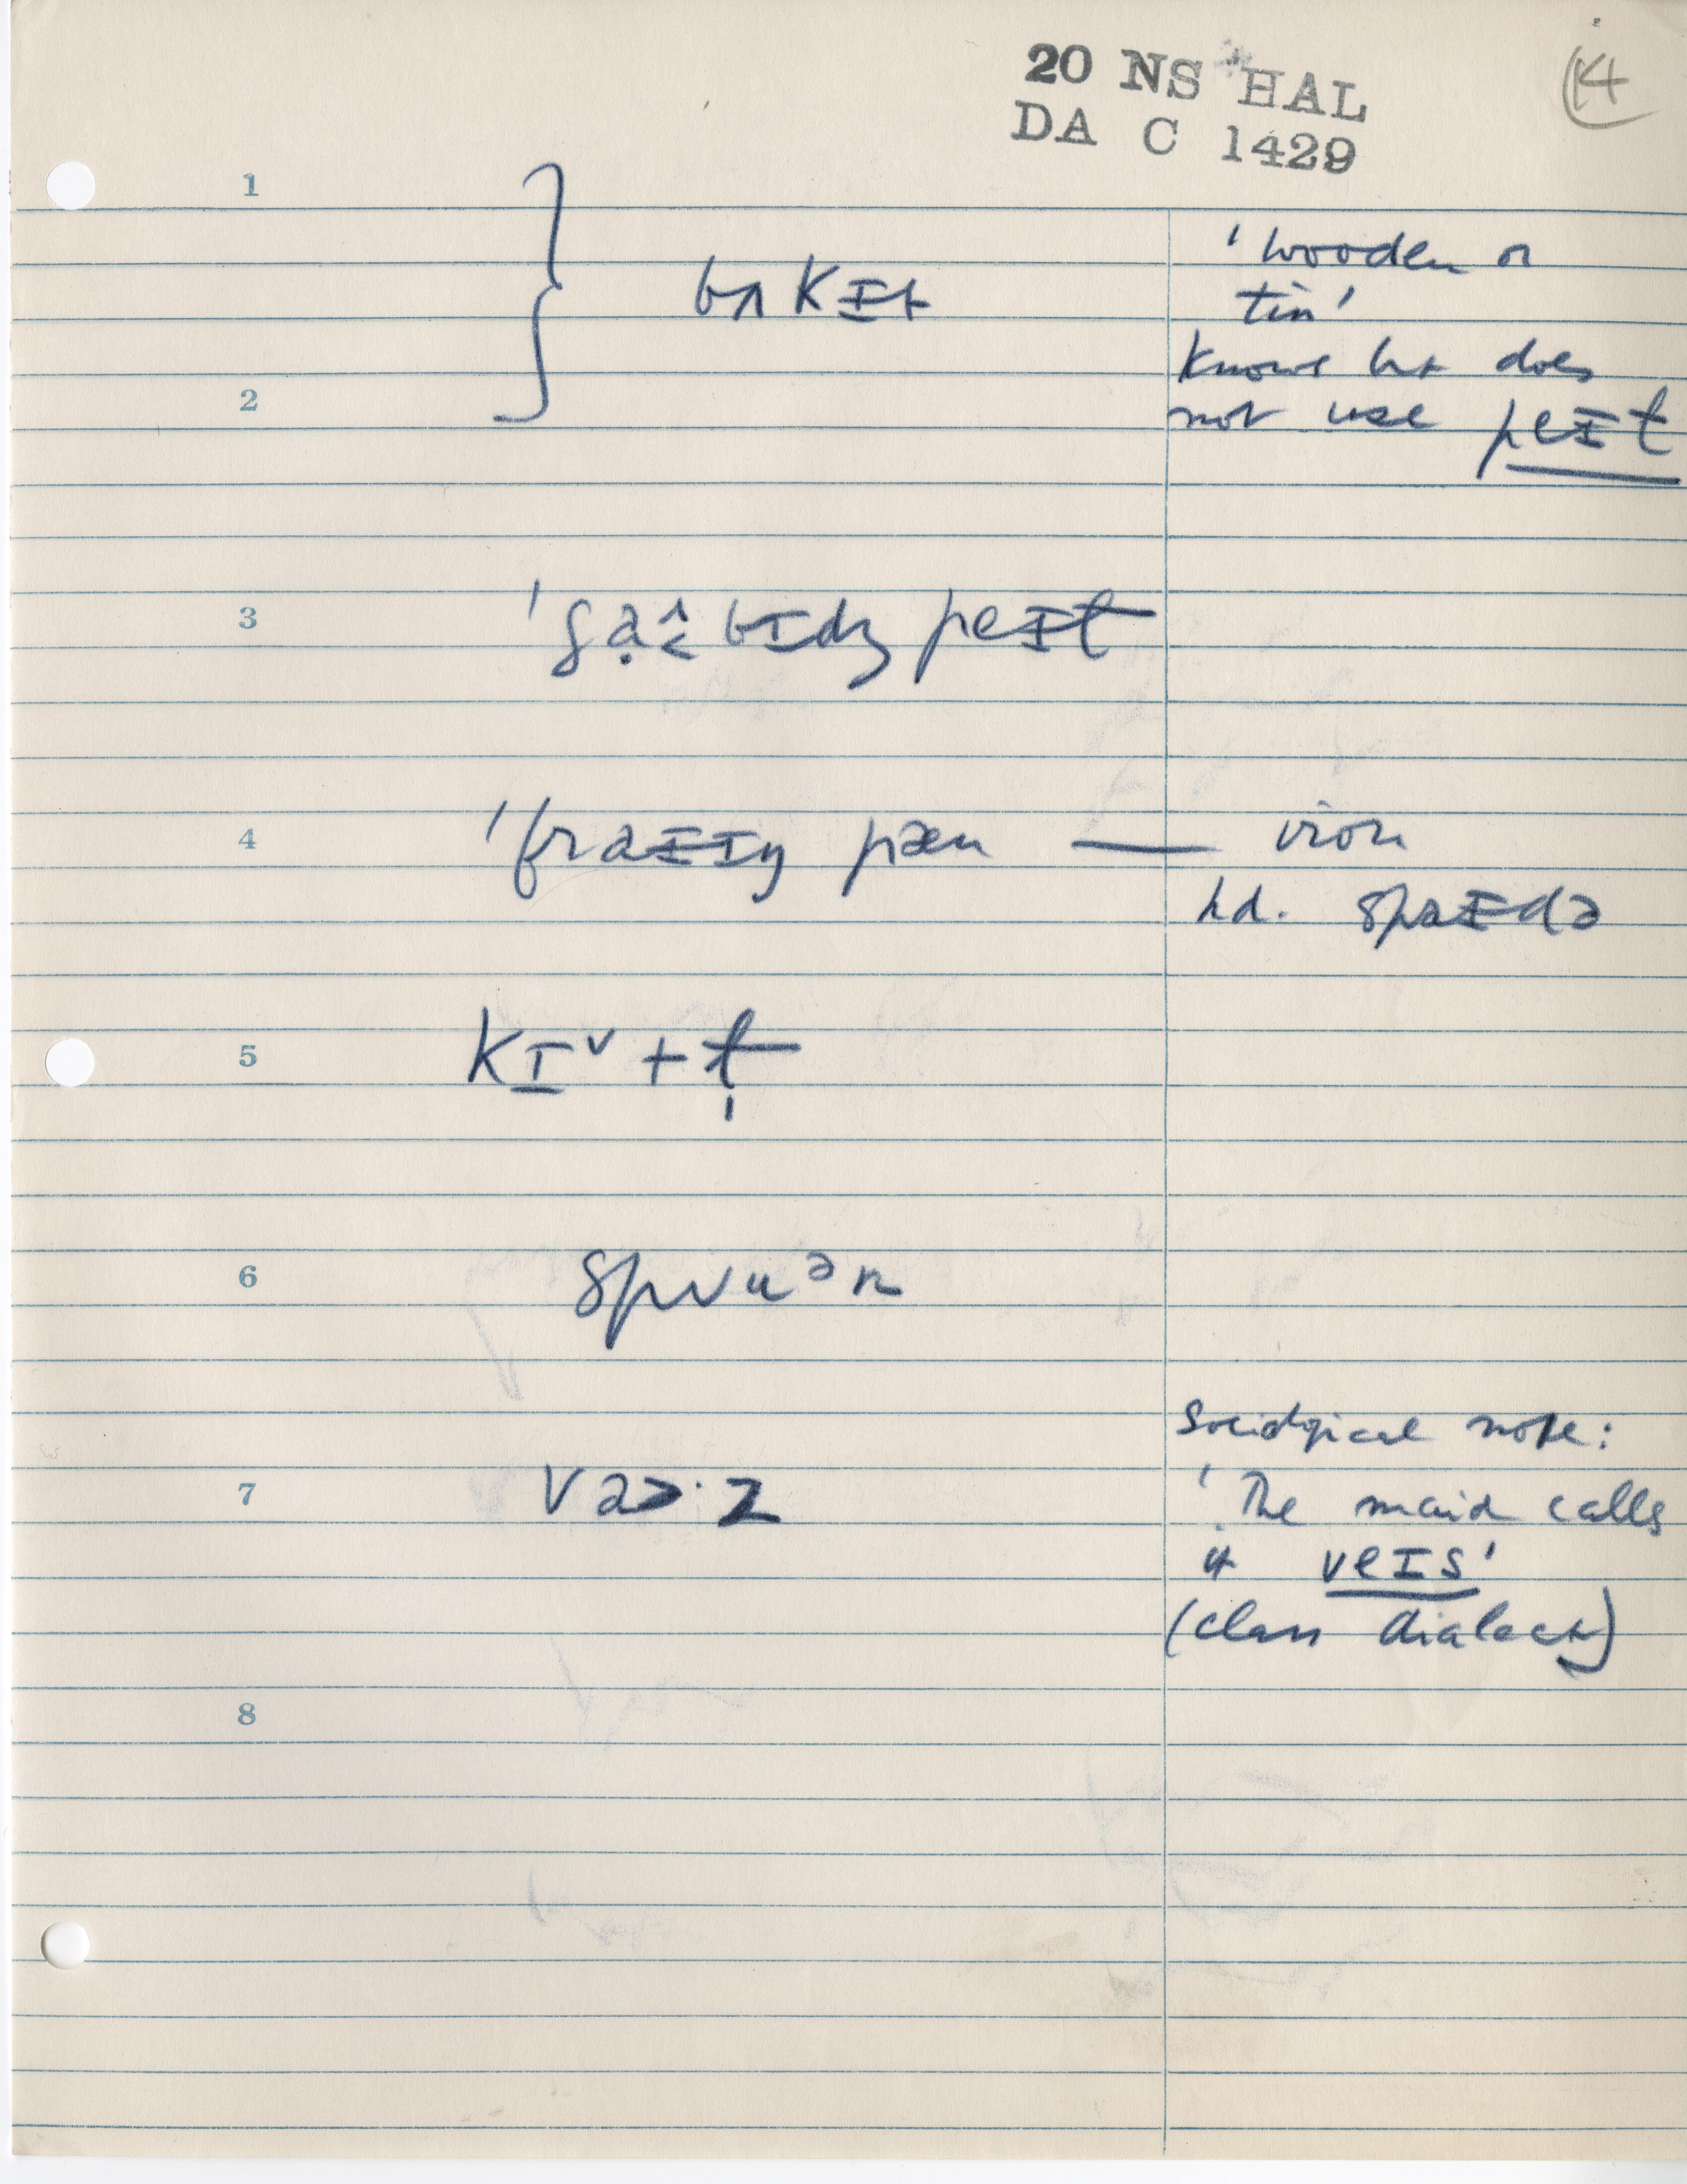 20 NS HAL
DA C 1429
14
1
bʌkɪt
'wooden or
tin'
Knows but does
2
not use peɪt
3
'gạ^ʀbɪdʒ peɪt
4
'fraɪɪŋ pæn — iron
hd. spaɪdə
5
kɪ˅ + ɫ̩
6
spɩuən
Sociological note:
7
va>·z
'The maid calls
it veɪs'
(class dialect)
8